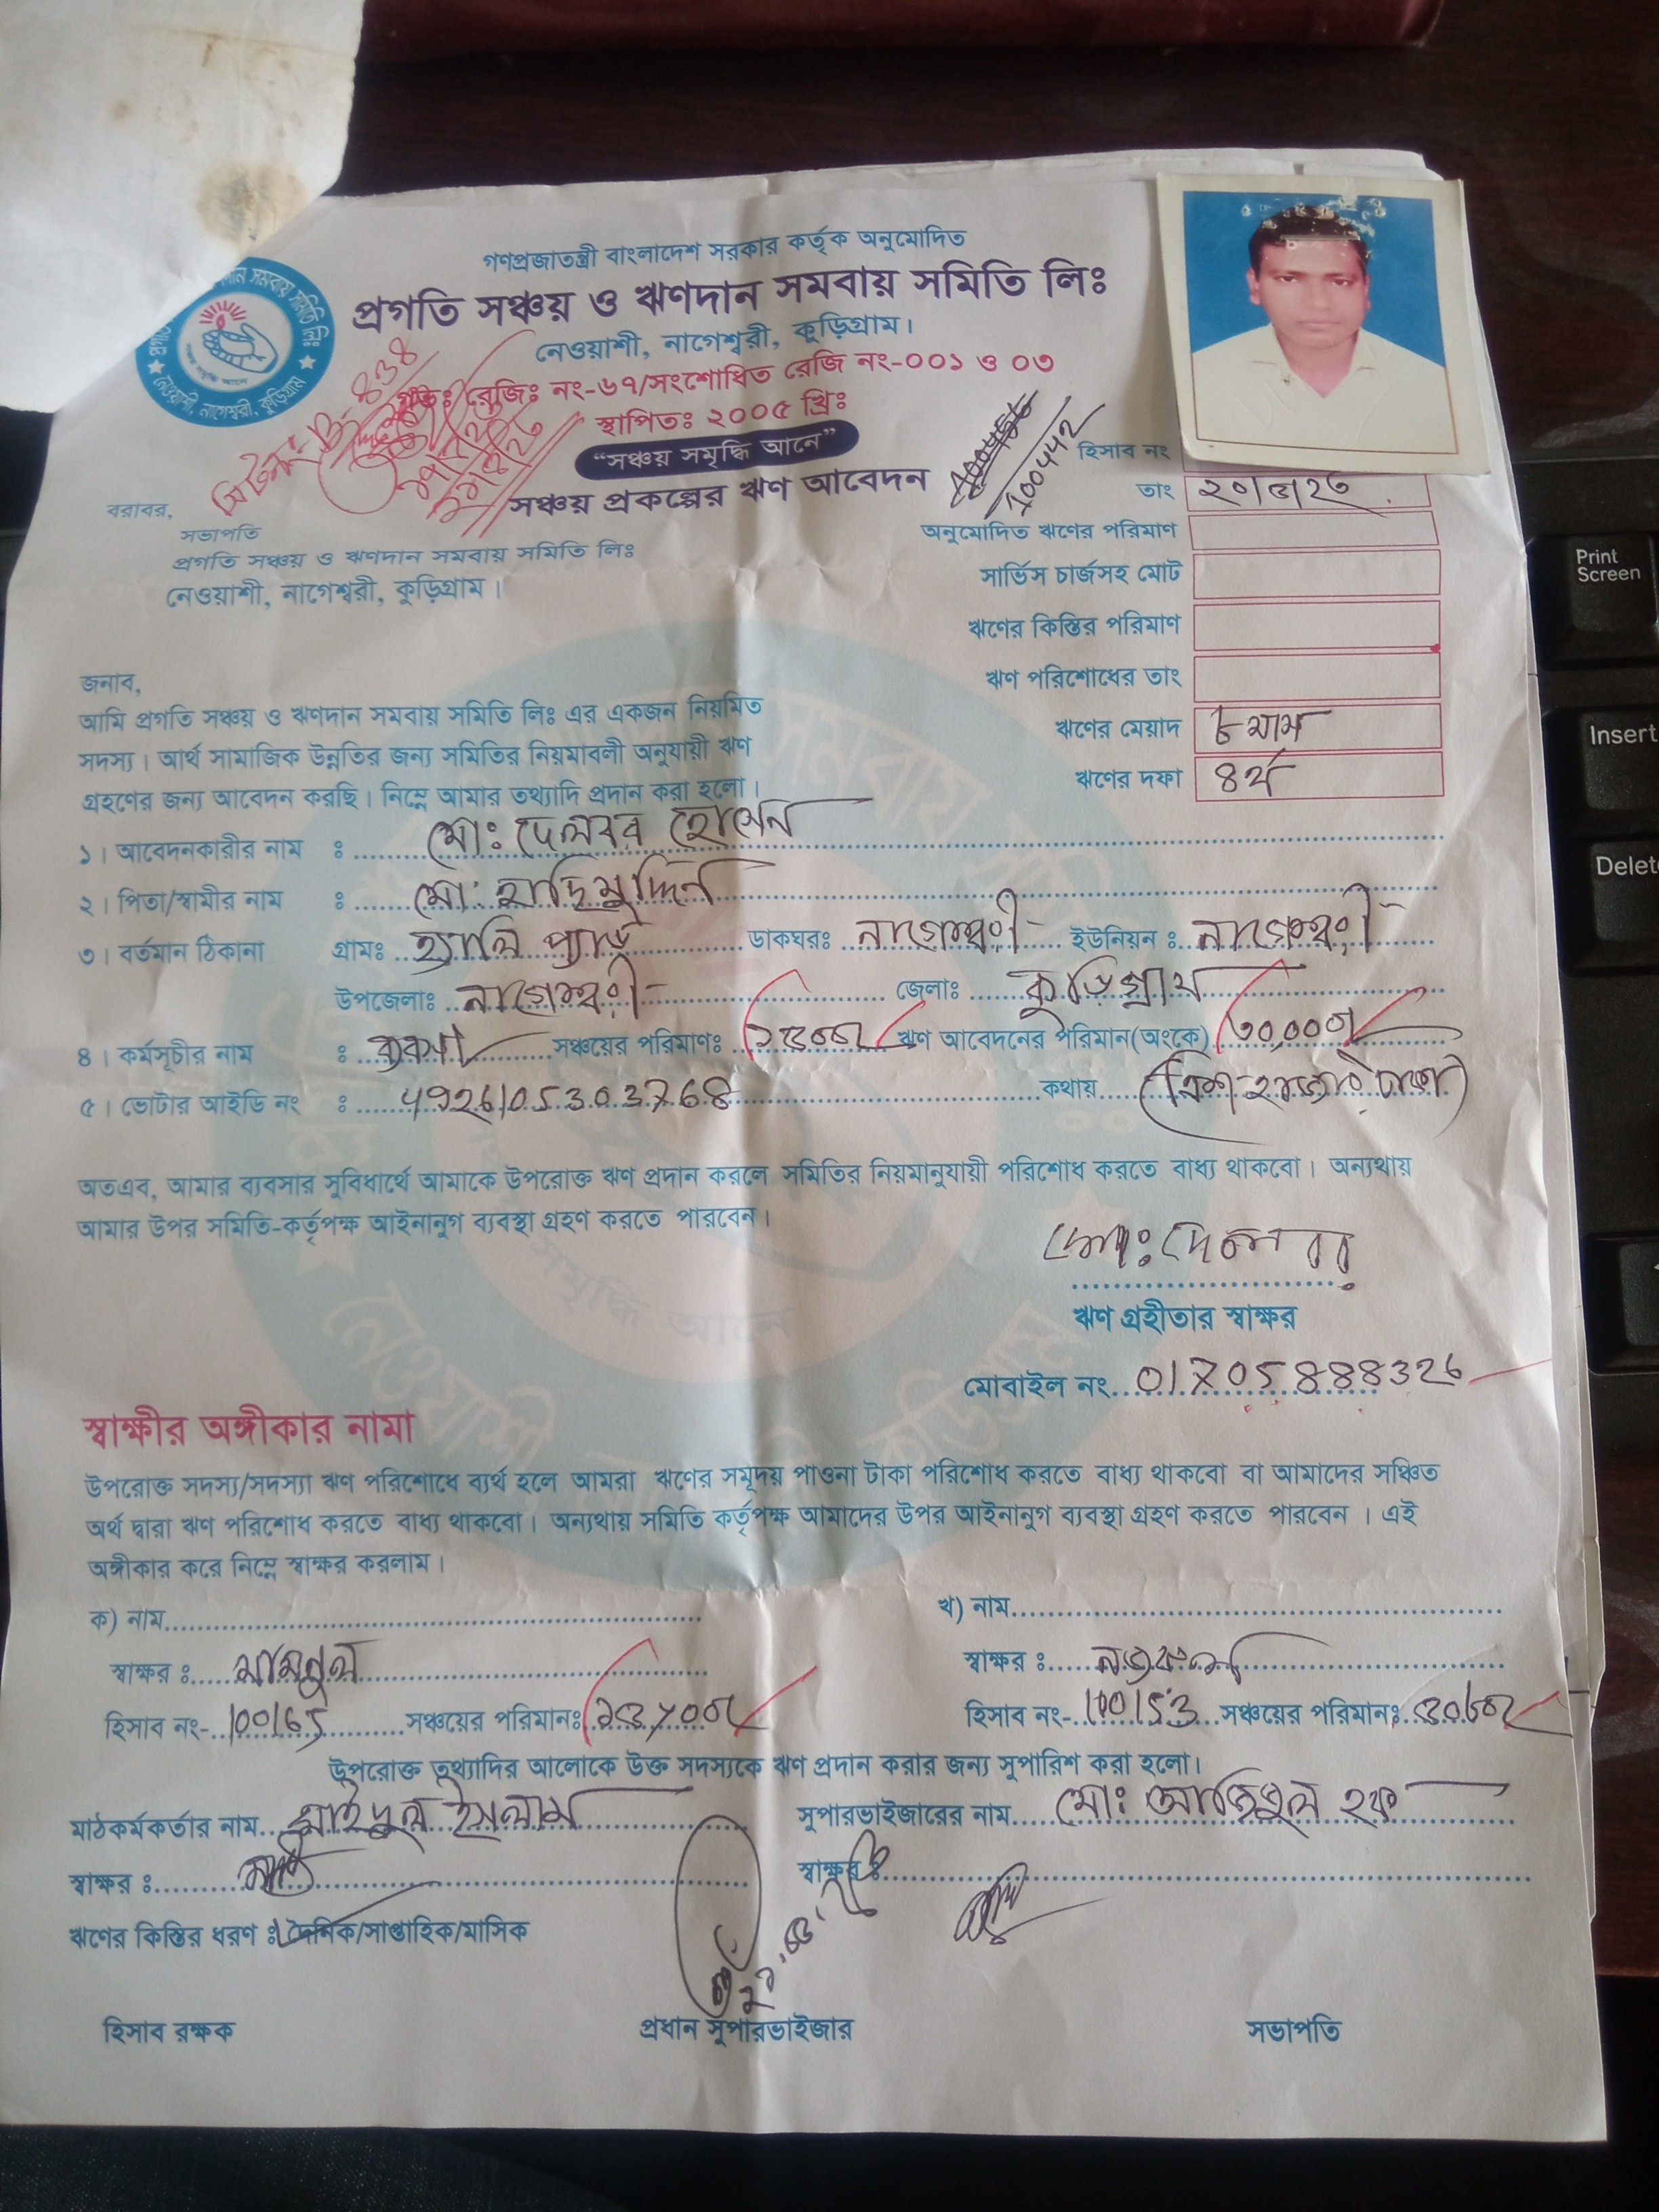 গণপ্রজাতন্ত্রী বাংলাদেশ সরকার কর্তৃক অনুমোদিত
প্রগতি সঞ্চয় ও ঋণদান সমবায় সমিতি লিঃ
নেওয়াশী, নাগেশ্বরী, কুড়িগ্রাম।
রেজিঃ নং-৬৭/সংশোধিত রেজি নং-০০১ ও ০৩
স্থাপিতঃ ২০০৫ খ্রিঃ
“সঞ্চয় সমৃদ্ধি আনে”
সঞ্চয় প্রকল্পের ঋণ আবেদন
100442
হিসাব নং
তাং
বরাবর,
সভাপতি
প্রগতি সঞ্চয় ও ঋণদান সমবায় সমিতি লিঃ
নেওয়াশী, নাগেশ্বরী, কুড়িগ্রাম।
অনুমোদিত ঋণের পরিমাণ
সার্ভিস চার্জসহ মোট
ঋণের কিস্তির পরিমাণ
ঋণ পরিশোধের তাং
ঋণের মেয়াদ ৮ মাস
ঋণের দফা ৪র্থ
জনাব,
আমি প্রগতি সঞ্চয় ও ঋণদান সমবায় সমিতি লিঃ এর একজন নিয়মিত
সদস্য। আর্থ সামাজিক উন্নতির জন্য সমিতির নিয়মাবলী অনুযায়ী ঋণ
গ্রহণের জন্য আবেদন করছি। নিম্নে আমার তথ্যাদি প্রদান করা হলো।
১। আবেদনকারীর নাম : মোঃ দেলবর হোসেন
২। পিতা/স্বামীর নাম : মোঃ হাদিমুদ্দিন
৩। বর্তমান ঠিকানা গ্রামঃ হ্যালি প্যাড ডাকঘরঃ নাগেশ্বরী ইউনিয়ন : নাগেশ্বরী
উপজেলাঃ নাগেশ্বরী জেলাঃ কুড়িগ্রাম
৪। কর্মসূচীর নাম : সঞ্চয়ের পরিমাণঃ ঋণ আবেদনের পরিমান(অংকে) ৩০,০০০/
৫। ভোটার আইডি নং : 4926105303768 কথায় (ত্রিশ হাজার টাকা)
অতএব, আমার ব্যবসার সুবিধার্থে আমাকে উপরোক্ত ঋণ প্রদান করলে সমিতির নিয়মানুযায়ী পরিশোধ করতে বাধ্য থাকবো। অন্যথায়
আমার উপর সমিতি-কর্তৃপক্ষ আইনানুগ ব্যবস্থা গ্রহণ করতে পারবেন।
মোঃ দেলবর
ঋণ গ্রহীতার স্বাক্ষর
মোবাইল নং 01705888326
স্বাক্ষীর অঙ্গীকার নামা
উপরোক্ত সদস্য/সদস্যা ঋণ পরিশোধে ব্যর্থ হলে আমরা ঋণের সমূদয় পাওনা টাকা পরিশোধ করতে বাধ্য থাকবো বা আমাদের সঞ্চিত
অর্থ দ্বারা ঋণ পরিশোধ করতে বাধ্য থাকবো। অন্যথায় সমিতি কর্তৃপক্ষ আমাদের উপর আইনানুগ ব্যবস্থা গ্রহণ করতে পারবেন । এই
অঙ্গীকার করে নিম্নে স্বাক্ষর করলাম।
ক) নাম খ) নাম
স্বাক্ষর : মামুনুল স্বাক্ষর :
হিসাব নং- 100165 সঞ্চয়ের পরিমানঃ হিসাব নং- 100153 সঞ্চয়ের পরিমানঃ
উপরোক্ত তথ্যাদির আলোকে উক্ত সদস্যকে ঋণ প্রদান করার জন্য সুপারিশ করা হলো।
মাঠকর্মকর্তার নাম সাইদুল ইসলাম সুপারভাইজারের নাম মোঃ আতিকুল হক
স্বাক্ষর : স্বাক্ষর :
ঋণের কিস্তির ধরণ : দৈনিক/সাপ্তাহিক/মাসিক
হিসাব রক্ষক প্রধান সুপারভাইজার সভাপতি
Print
Screen
Insert
Delete